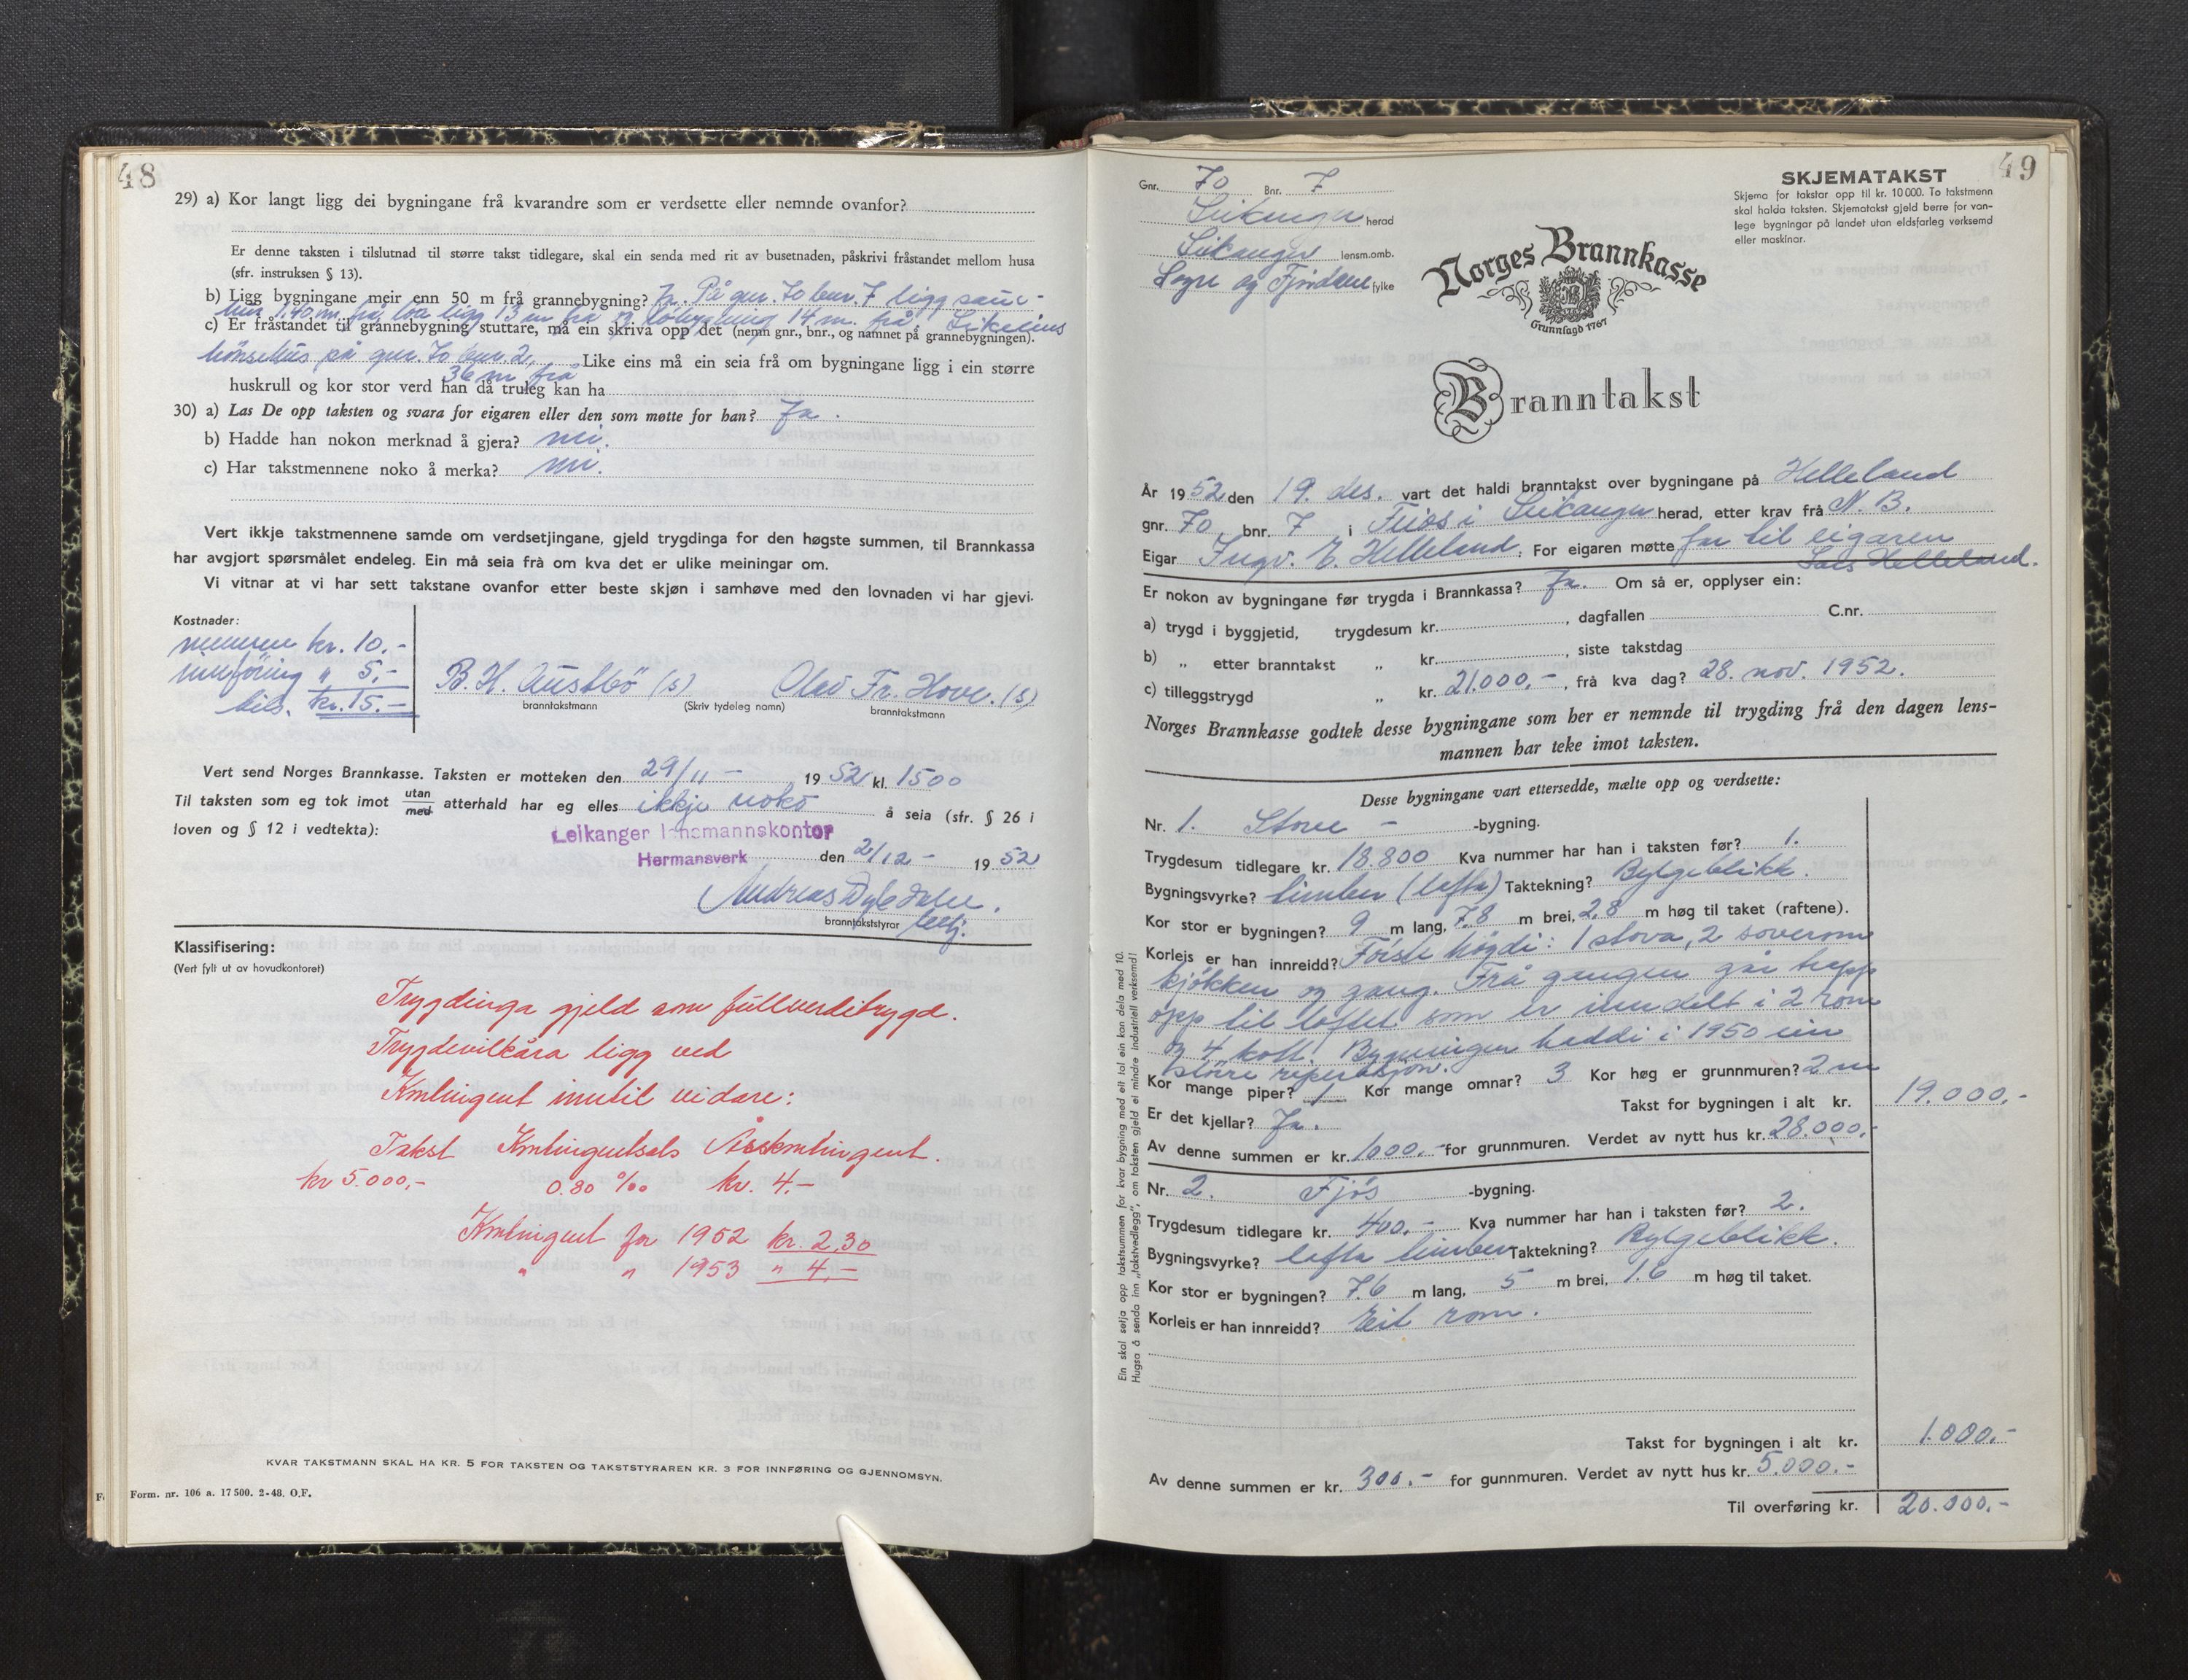 48
29) a) Kor langt ligg dei bygningane frå kvarandre som er verdsette eller nemnde ovanfor?
Er denne taksten i tilslutnad til større takst tidlegare, skal ein senda med rit av busetnaden, påskrivi fråstandet mellom husa
(sfr. instruksen § 13).
b) Ligg bygningane meir enn 50 m frå grannebygning? Ja. På gnr. 70 bnr. 7 ligg saue-
hus 140 m. frå, løa ligg 13 m frå og 14 m. frå,
c) Er fråstandet til grannebygning stuttare, må ein skriva opp det (nemn gnr., bnr., og namnet på grannebygningen).
hönsehus på gnr. 70 bnr. 2, Like eins må ein seia frå om bygningane ligg i ein større
36 m frå
huskrull og kor stor verd han då truleg kan ha
30) a) Las De opp taksten og svara for eigaren eller den som møtte for han? Ja.
b) Hadde han nokon merknad å gjera? nei.
c) Har takstmennene noko å merka? nei.
Vert ikkje takstmennene samde om verdsetjingane, gjeld trygdinga for den høgste summen, til Brannkassa
har avgjort spørsmålet endeleg. Ein må seia frå om kva det er ulike meiningar om.
Vi vitnar at vi har sett takstane ovanfor etter beste skjøn i samhøve med den lovnaden vi har gjevi.
Kostnader:
kr. 10.-
innføring " 5,-
tils. kr. 15.-
B. H. Austbö (s) Olav Fr. Hove. (s)
branntakstmann (Skriv tydeleg namn) branntakstmann
Vert send Norges Brannkasse. Taksten er motteken den 29/11 - 1952 kl. 1500
Til taksten som eg tok imot utan/med atterhald har eg elles ikkje noko å seia (sfr. § 26 i
loven og § 12 i vedtekta):
Leikanger lensmannskontor
Hermansverk den 2/12 - 1952
Andreas Dybdale.
branntakststyrar
Klassifisering:
(Vert fylt ut av hovudkontoret)
Trygdinga gjeld som fullverditrygd.
Trygdevilkåra ligg ved
Kontingent inntil vidare:
Takst Kontingentsats Årskontingent.
kr 5.000,- 0.80 ‰ kr. 4.-
Kontingent for 1952 kr. 2,30
" " 1953 " 4,-
KVAR TAKSTMANN SKAL HA KR. 5 FOR TAKSTEN OG TAKSTSTYRAREN KR. 3 FOR INNFØRING OG GJENNOMSYN.
Form. nr. 106 a. 17500. 2-48. O.F.
49
Gnr. 70 Bnr. 7
Leikanger herad
Leikanger lensm.omb.
Sogn og Fjordane fylke
SKJEMATAKST
Skjema for takstar opp til kr. 10 000. To takstmenn
skal halda taksten. Skjematakst gjeld berre for van-
lege bygningar på landet utan eldsfarleg verksemd
eller maskinar.
Norges Brannkasse
Grunnlagd 1767
Branntakst
År 1952 den 19. des. vart det haldi branntakst over bygningane på Helleland
gnr. 70 bnr. 7 i Feios i Leikanger herad, etter krav frå N. B.
Eigar Ingv. E. Helleland. For eigaren møtte far til eigaren
Lars Helleland.
Er nokon av bygningane før trygda i Brannkassa? Ja. Om så er, opplyser ein:
a) trygd i byggjetid, trygdesum kr. , dagfallen C.nr.
b) „ etter branntakst „ kr. , siste takstdag
c) tilleggstrygd „ kr. 21.000,- , frå kva dag? 28. nov. 1952.
Norges Brannkasse godtek desse bygningane som her er nemnde til trygding frå den dagen lens-
mannen har teke imot taksten.
Desse bygningane vart ettersedde, mælte opp og verdsette:
Nr. 1. Stove - -bygning.
Trygdesum tidlegare kr. 18.800 Kva nummer har han i taksten før? 1.
Bygningsvyrke? timber (lafta) Taktekning? Bylgeblikk.
Kor stor er bygningen? 9 m lang, 7,8 m brei, 2,8 m høg til taket (raftene).
Korleis er han innreidd? Förste högdi: 1 stova, 2 soverom
kjökken og gang. Frå gangen går trapp
opp til loftet som er inndelt i 2 rom
og 4 kott. Bygningen hadde i 1950 ein
större reperasjon.
Kor mange piper? 1 Kor mange omnar? 3 Kor høg er grunnmuren? 2 m
Er det kjellar? Ja. Takst for bygningen i alt kr. 19.000,-
Av denne summen er kr. 1000.- for grunnmuren. Verdet av nytt hus kr. 28.000,-
Nr. 2. Fjös -bygning.
Trygdesum tidlegare kr. 400.- Kva nummer har han i taksten før? 2.
Bygningsvyrke? lafta timber Taktekning? Bylgeblikk.
Kor stor er bygningen? 7,6 m lang, 5 m brei, 1.6 m høg til taket.
Korleis er han innreidd? Eit rom.
Takst for bygningen i alt kr. 1.000.-
Av denne summen er kr. 300.- for gunnmuren. Verdet av nytt hus kr. 5.000.-
Til overføring kr. 20.000,-
Ein skal setja opp takstsummen for kvar bygning med eit tal ein kan dela med 10.
Hugsa å senda inn „takstvedlegg”, om taksten gjeld ei mindre industriell verksemd!